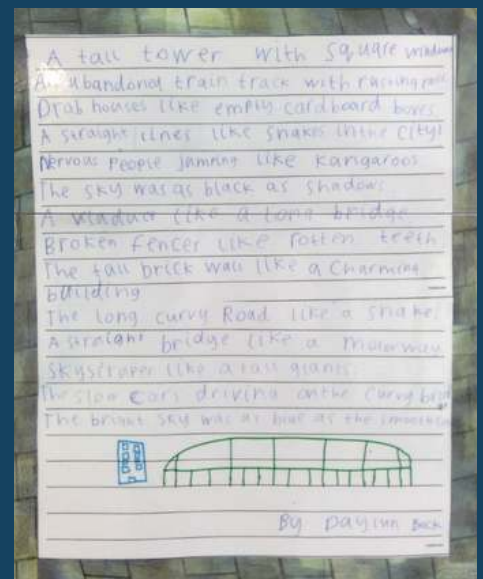 A tall tower with square windows
An abandond train track with rusting
Drab houses like empty cardboard boxes
A straight lines like snakes in the city!
Nervous People Jamping like Kangaroos
The sky was as black as shadows
A viaduct like a long bridge
Broken fencer like rotten teeth
The tall brick wall like a Charming
building
The long curvy Road like a snake.
A straight bridge like a motorway
skyscraper like a tall giants.
The slow cars driving on the curvy
The bright sky was as blue as the
By